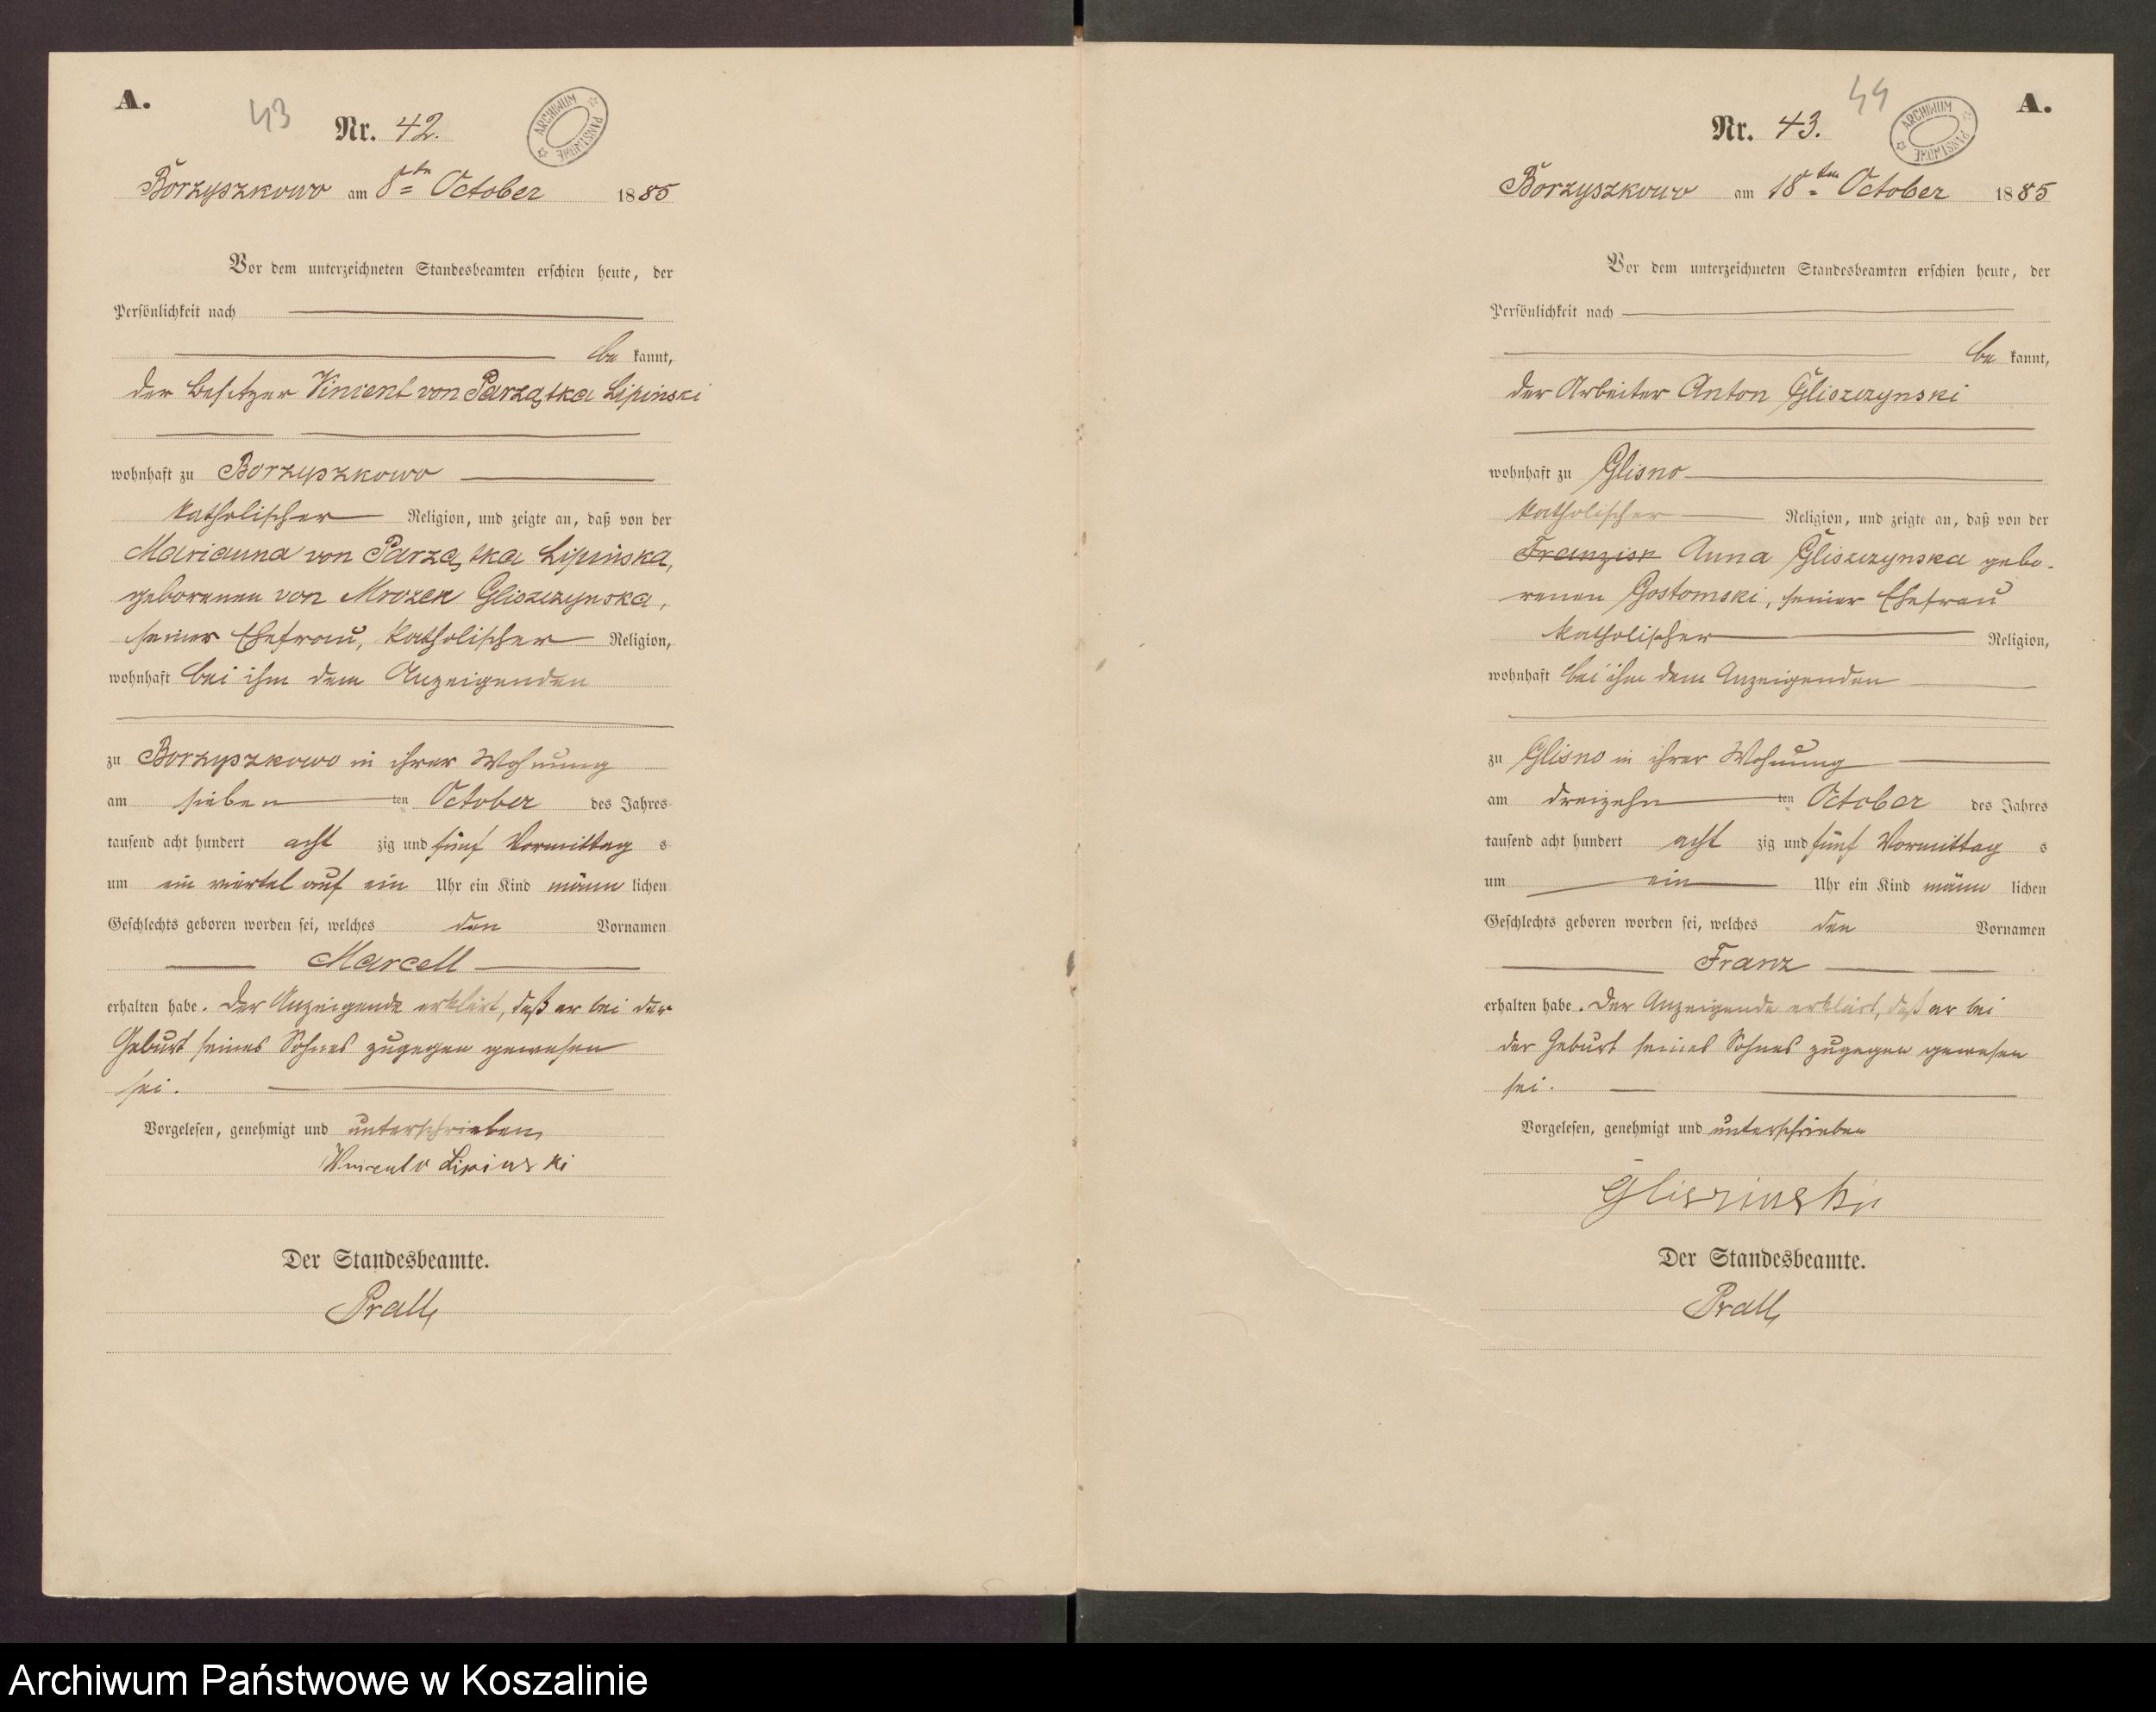 A.
43
Nr. 42.
ARCHIWUM PAŃSTWOWE
Borzyszkowo am 8ten October 1885
Vor dem unterzeichneten Standesbeamten erschien heute, der
Persönlichkeit nach
be kannt,
der Besitzer Vincent von Parzątka Lipinski
wohnhaft zu Borzyszkowo
katholischer Religion, und zeigte an, daß von der
Marianna von Parzątka Lipinska,
geborenen von Mrozek Gliszczynska,
seiner Ehefrau, katholischer Religion,
wohnhaft bei ihm dem Anzeigenden
zu Borzyszkowo in ihrer Wohnung
am sieben ten October des Jahres
tausend acht hundert acht zig und fünf Vormittag s
um ein viertel auf ein Uhr ein Kind männ lichen
Geschlechts geboren worden sei, welches den Vornamen
Marcell
erhalten habe. Der Anzeigende erklärt, daß er bei der
Geburt seines Sohnes zugegen gewesen
sei.
Vorgelesen, genehmigt und unterschrieben
Lipinski
Der Standesbeamte.
Prall
A.
44
Nr. 43.
ARCHIWUM PAŃSTWOWE
Borzyszkowo am 18ten October 1885
Vor dem unterzeichneten Standesbeamten erschien heute, der
Persönlichkeit nach
be kannt,
der Arbeiter Anton Gliszczynski
wohnhaft zu Glisno
katholischer Religion, und zeigte an, daß von der
Franzisk Anna Gliszczynska gebo-
renen Gostomski, seiner Ehefrau
katholischer Religion,
wohnhaft bei ihm dem Anzeigenden
zu Glisno in ihrer Wohnung
am dreizehn ten October des Jahres
tausend acht hundert acht zig und fünf Vormittag s
um ein Uhr ein Kind männ lichen
Geschlechts geboren worden sei, welches den Vornamen
Franz
erhalten habe. Der Anzeigende erklärt, daß er bei
der Geburt seines Sohnes zugegen gewesen
sei.
Vorgelesen, genehmigt und unterschrieben
Gliszinski
Der Standesbeamte.
Prall
Archiwum Państwowe w Koszalinie